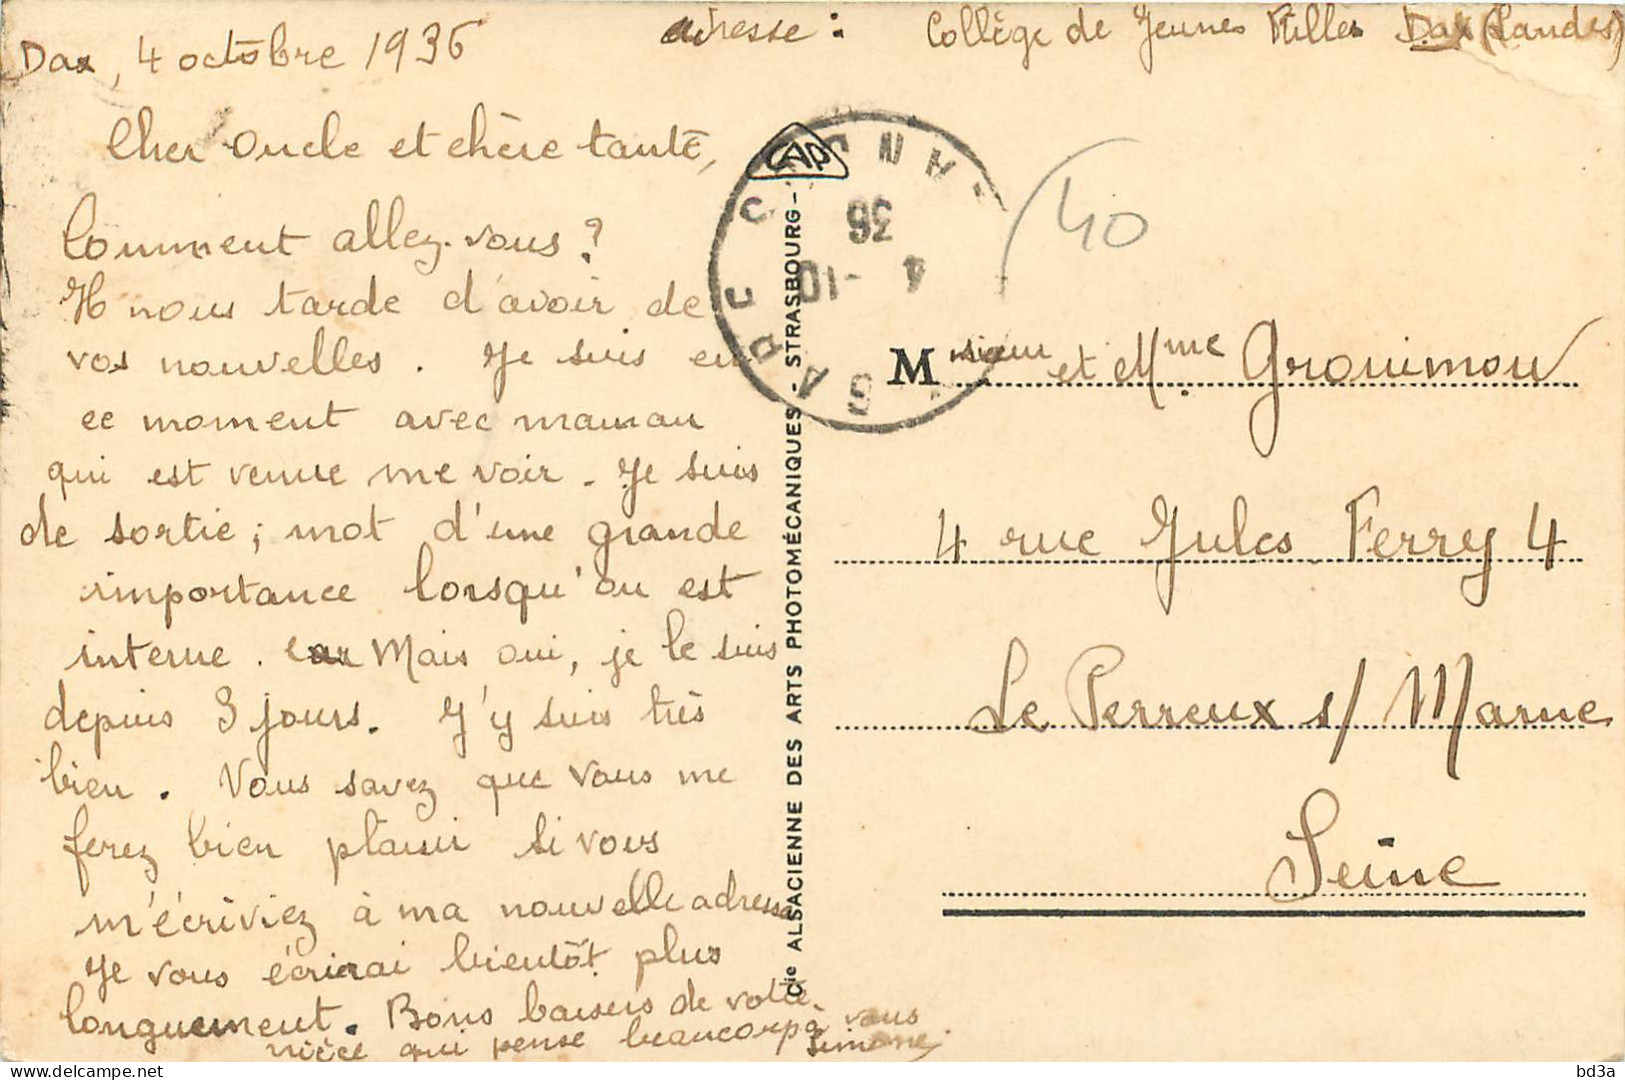 Dax, 4 octobre 1936
adresse : Collège de Jeunes Filles Dax (Landes)
Cher Oncle et chère tante,
Comment allez-vous ?
Il nous tarde d'avoir de
vos nouvelles. Je suis en
ce moment avec maman
qui est venue me voir. Je suis
de sortie ; mot d'une grande
importance lorsqu'on est
interne. car Mais oui, je le suis
depuis 3 jours. J'y suis très
bien. Vous savez que vous me
ferez bien plaisir si vous
m'écriviez à ma nouvelle adresse
Je vous écrirai bientôt plus
longuement. Bons baisers de votre
nièce qui pense beaucoup à vous
Simone.
CAP
Cie ALSACIENNE DES ARTS PHOTOMÉCANIQUES - STRASBOURG -
4 -10
36
40
Monsieur et Mme Grouimou
4 rue Jules Ferry 4
Le Perreux s/ Marne
Seine
bd3a